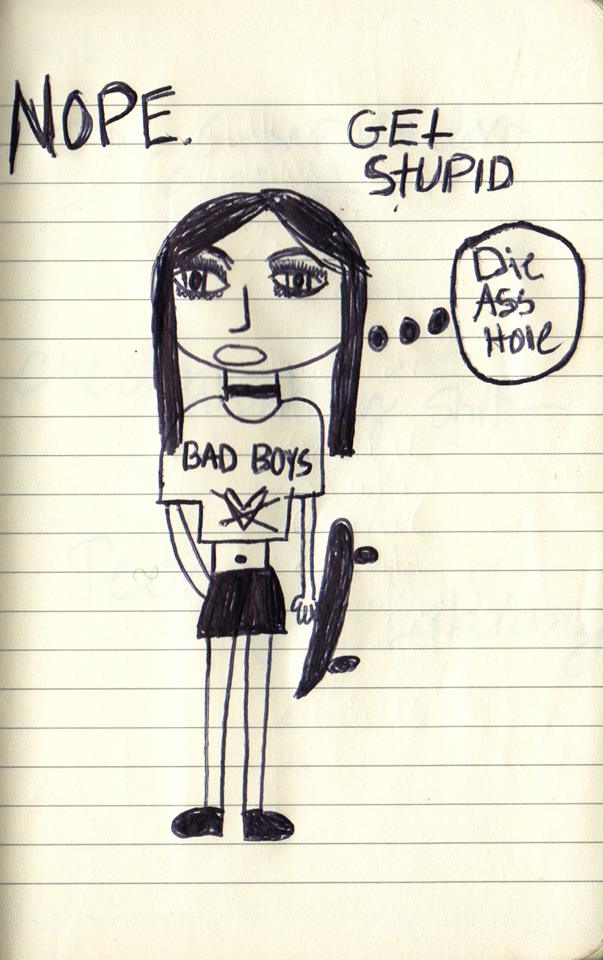 NOPE.
GET
STUPID
Die
Ass
Hole
BAD BOYS